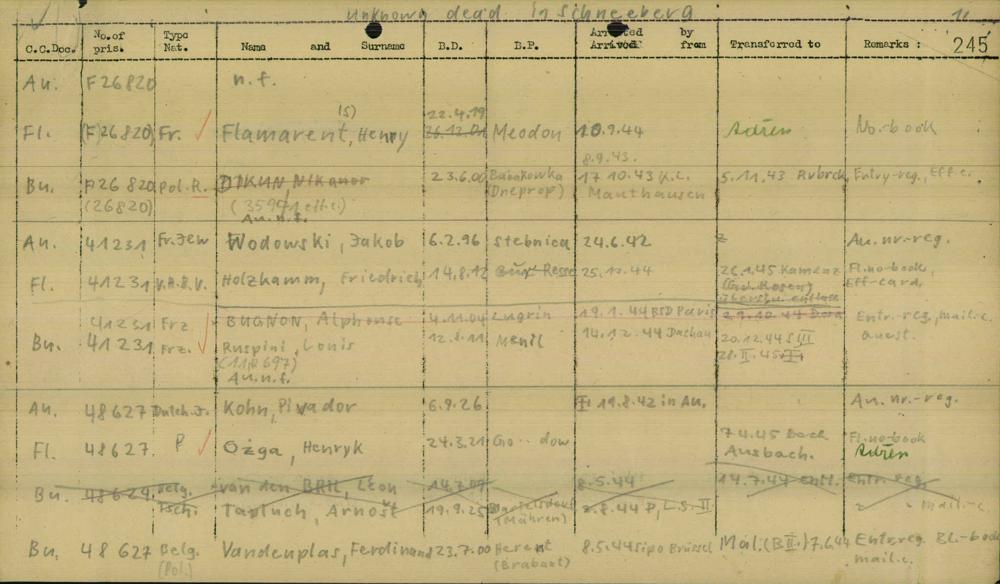 unknown dead in Schneeberg
C.C.Doc. No.of pris. Type Nat. Name and Surname B.D. B.P. Arrested by Arrived from Transferred to Remarks : 245
Au. F26820 n.f.
15) 22.4.19
Fl. (F)26820 Fr. Flamarent, Henry 26.12.01 Meodon 10.9.44 No.-book
8.9.43.
Bu. F26 820 Pol.R. DIKUN, Nikanor 23.6.00 Babakowka 17 10.43 K.L. 5.11.43 Entry-reg., Eff-c.
(26820) (35991 eff.c.) (Dneprop) Mauthausen
Au. n.f.
Au. 41231 Fr.Jew Wodowski, Jakob 6.2.96 Stebnica 24.6.42 Au. nr.-reg.
Fl. 41231 Holzkamm, Friedrich 14.8.12 25.12.44 26.1.45 Kamenz Fl.no-book,
(Groß Rosen) Eff-card,
41231 Frz. BUGNON, Alphonse 4.11.04 Lugrin 19.1.44 BSD Paris 29.10.44 Dora Entr.-reg, mail.-c.
Bu. 41231 Frz. Ruspini, Louis 12.8.11 Menil 14.12.44 Dachau 20.12.44 S III quest.
(118697) 28.II.45
Au.n.f.
Au. 48627 Dutch.J. Kohn, Pivador 6.9.26 19.8.42 in Au. Au. nr.-reg.
Fl. 48627. P Ożga, Henryk 24.3.21 7 4.45 Fl.no-book
Ausbach.
Bu. 48627. Belg. van den BRIL, Léon 14.7.09 8.5.44 14.7.44 entl. Entr.reg.
Tschi. Tapluch, Arnošt 19.9.25 2.8.44 P, L.S.II mail.-c.
(Mähren)
Bu. 48 627 Belg. Vandenplas, Ferdinand 23.7.00 Herent 8.5.44 Sipo Brüssel Mal.(B II.) 7.6.44 Entr.reg. Bl.-book
(Pol.) (Brabant) mail.c.